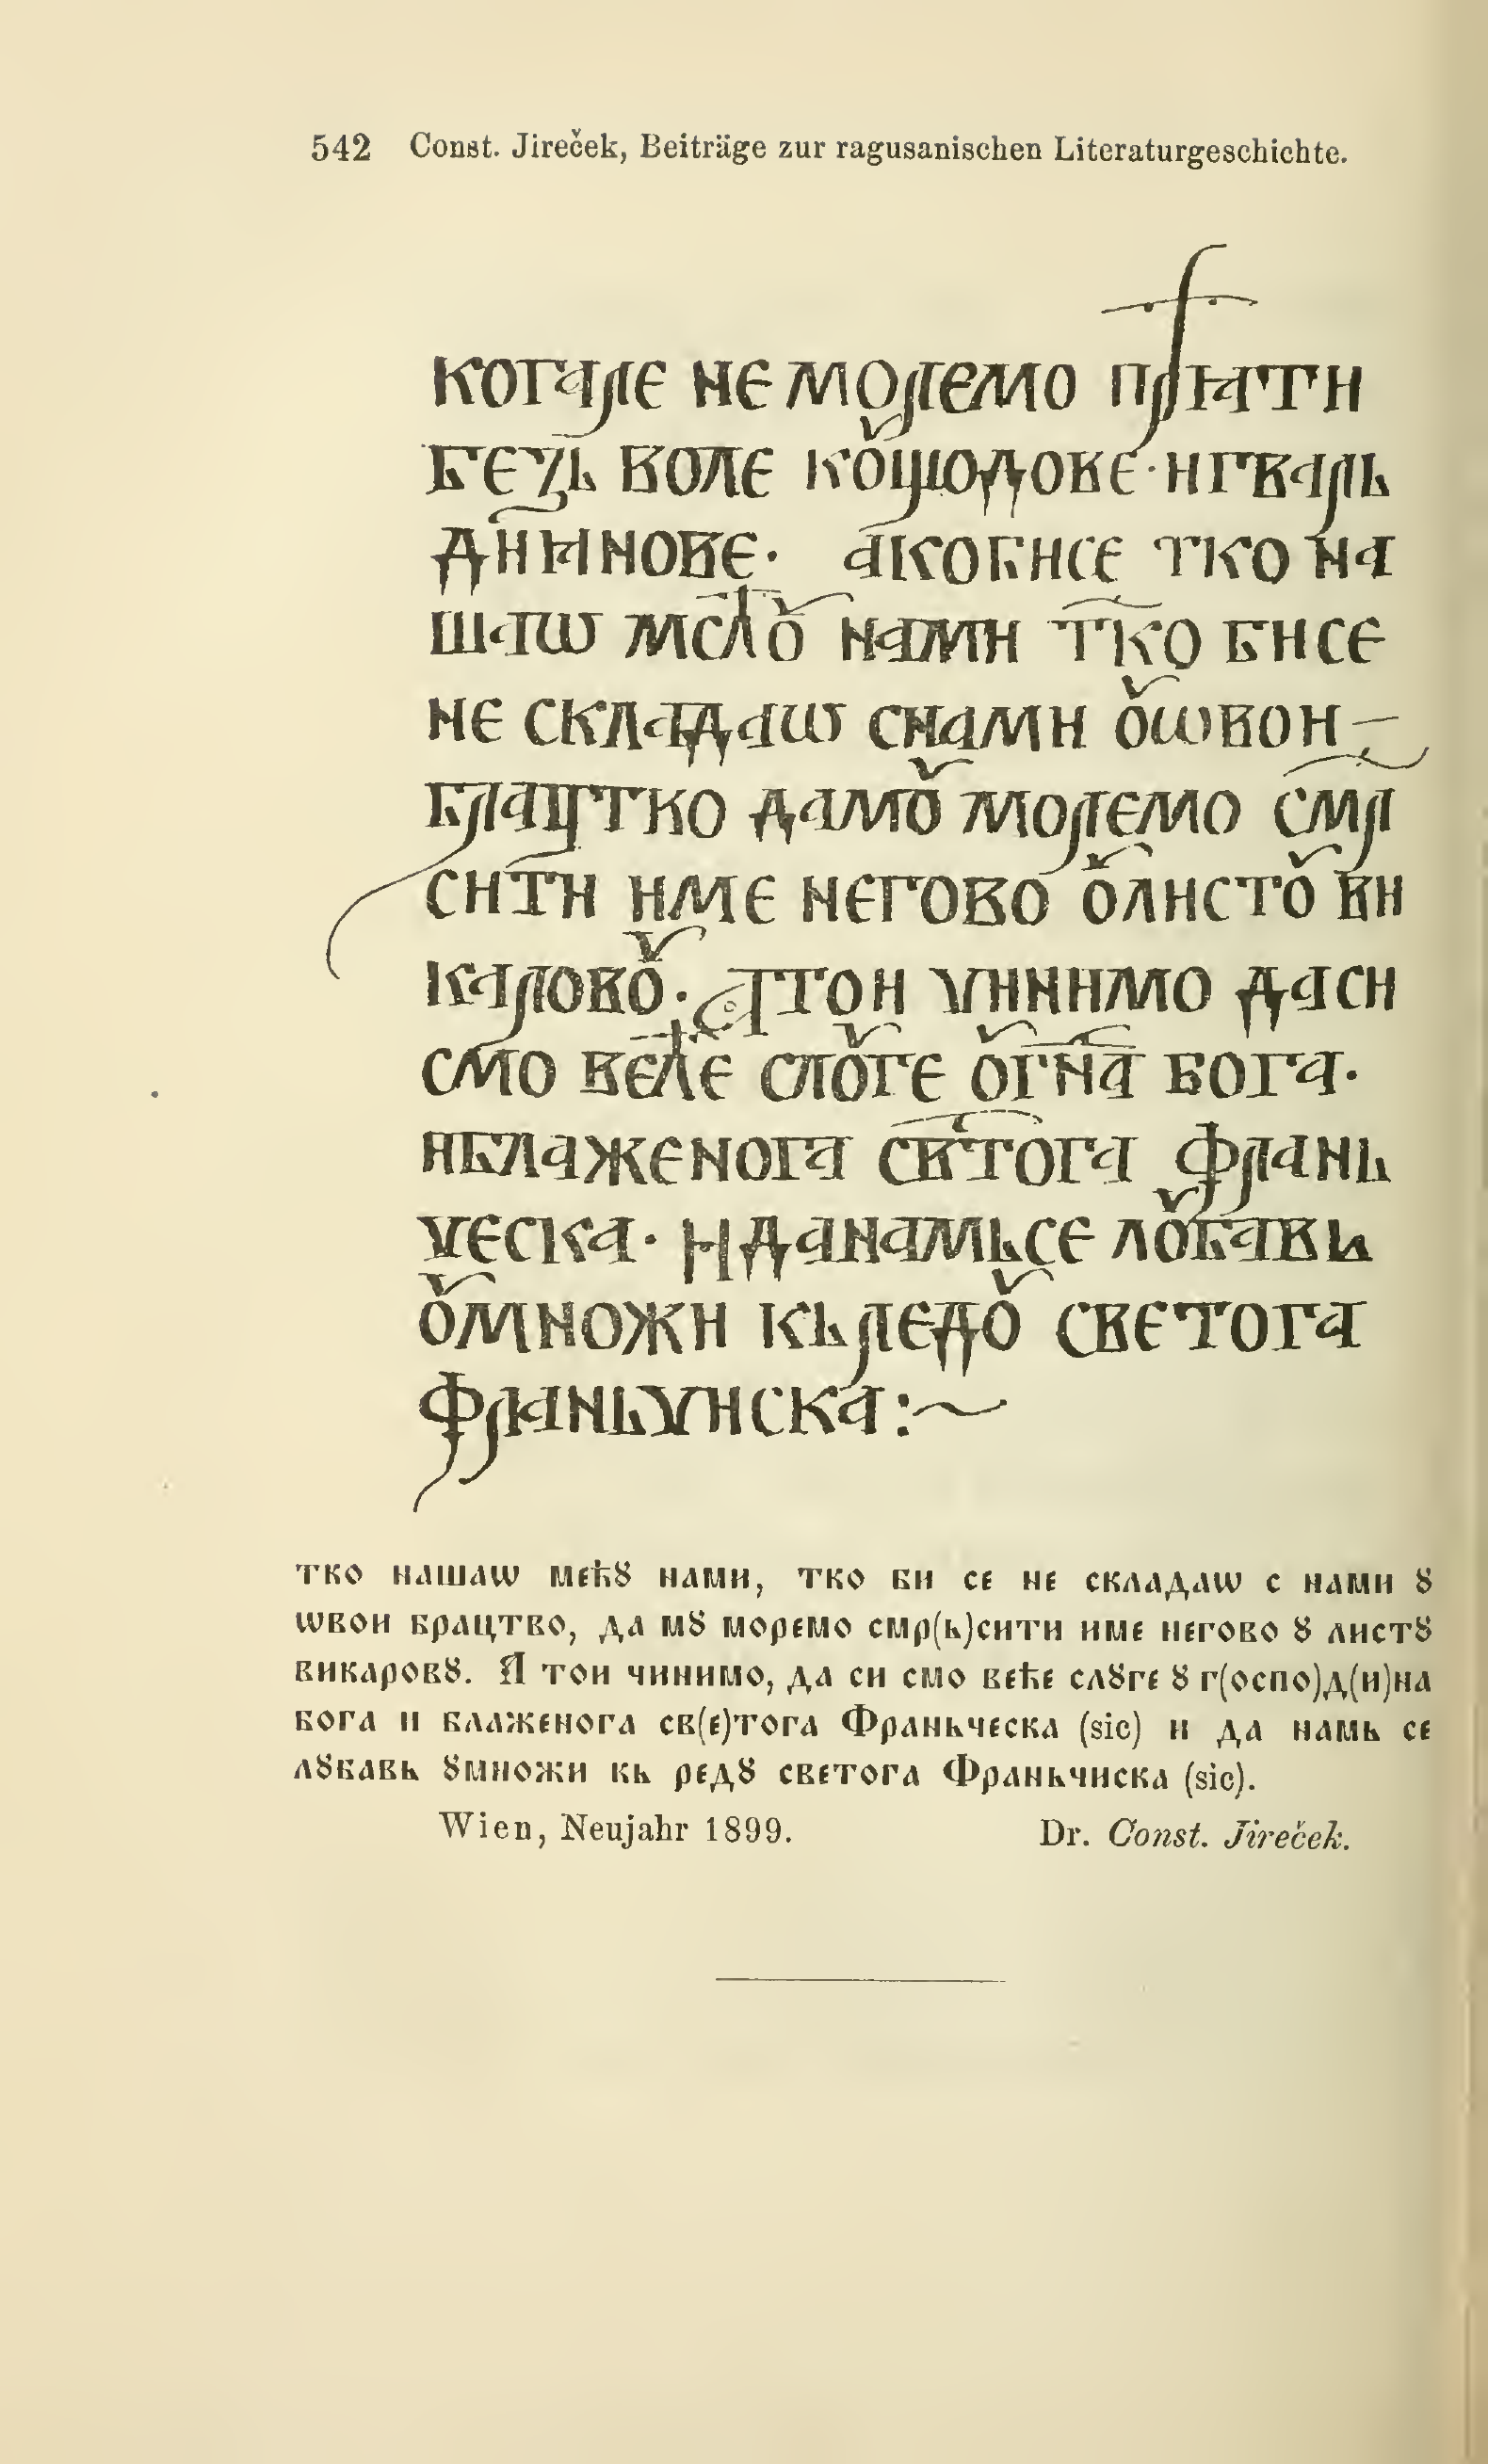 542 Const. Jireček, Beiträge zur ragusanischen Literaturgeschichte.
когарє нє морємо
бєзьволє
тко на
шаѡ нами тко би сє
нє складаѡ снами ꙋѡвои
брацтко дамꙋ морємо смр
сити имє нєгово ꙋлистꙋ ви
каровꙋ· а тои чинимо даси
смо вєћє слꙋгє ꙋгна бога·
иблажєнога свтога франь
чєска· и данамьсє лꙋбавь
ꙋмножи кьрєдꙋ свєтога
франьчиска :~
тко нашаѡ мєћꙋ нами, тко би сє нє складаѡ с нами ꙋ
ѡвои брацтво, да мꙋ морємо смр(ь)сити имє нєгово ꙋ листꙋ
викаровꙋ. Я тои чинимо, да си смо вєћє слꙋгє ꙋ г(оспо)д(и)на
бога и блажєнога св(є)тога Франьчєска (sic) и да намь сє
лꙋбавь ꙋмножи кь рєдꙋ свєтога Франьчиска (sic).
Wien, Neujahr 1899. Dr. Const. Jireček.